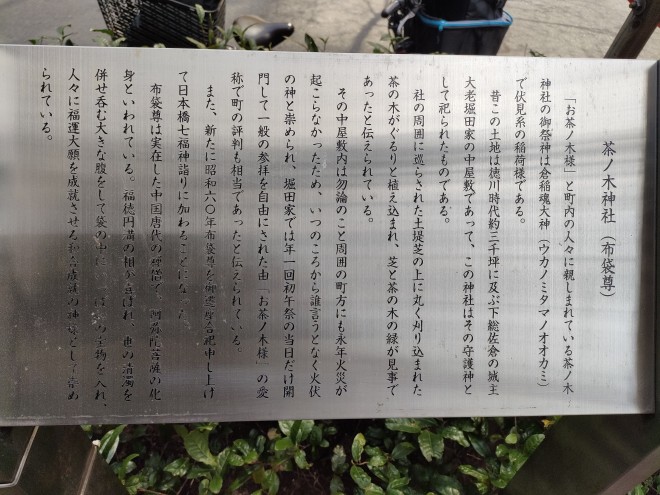 茶ノ木神社（布袋尊）
「お茶ノ木様」と町内の人々に親しまれている茶ノ木
神社の御祭神は倉稲魂大神（ウカノミタマノオオカミ）
で伏見系の稲荷様である。
昔この土地は徳川時代約三千坪に及ぶ下総佐倉の城主
大老堀田家の中屋敷であって、この神社はその守護神と
して祀られたものである。
社の周囲に巡らされた土堤芝の上に丸く刈り込まれた
茶の木がぐるりと植え込まれ、芝と茶の木の緑が見事で
あったと伝えられている。
その中屋敷内は勿論のこと周囲の町方にも永年火災が
起こらなかったため、いつのころから誰言うとなく火伏
の神と崇められ、堀田家では年一回初午祭の当日だけ開
門して一般の参拝を自由にされた由「お茶ノ木様」の愛
称で町の評判も相当であったと伝えられている。
また、新たに昭和六〇年布袋尊を御遷座合祀申し上げ
て日本橋七福神詣りに加わることになった
布袋尊は実在した中国唐代の禅僧で、阿弥陀菩薩の化
身といわれている。福徳円満の相が喜ばれ、世の清濁を
併せ呑む大きな腹をして袋の中に の宝物を入れ、
人々に福運大願を成就させる和合成就の神様として崇め
られている。